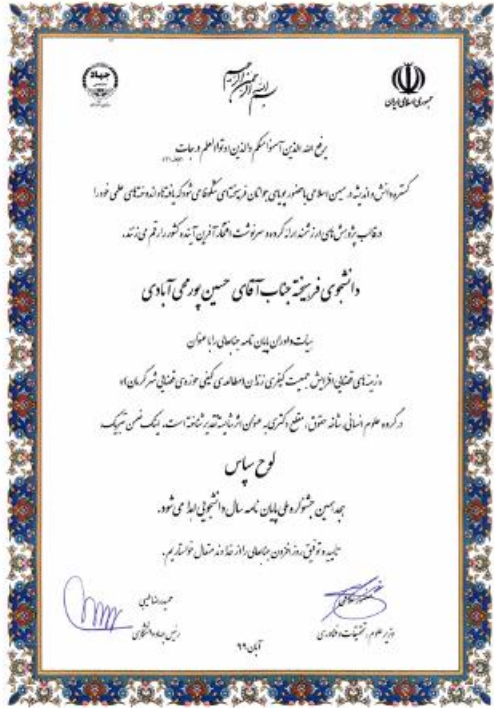 بسم الله الرحمن الرحیم
جهاد
جمهوری اسلامی ایران
یرفع الله الذین آمنوا منکم والذین اوتوا العلم درجات
گستره دانش و اندیشه در میهن اسلامی با حضور پویای جوانان فرهیخته‌ای شکوفا می‌شود که یافته‌ها و اندوخته‌های علمی خود را
در قالب پژوهش‌های ارزشمند ارائه کرده و سرنوشت افتخارآفرین آینده کشور را رقم می‌زنند.
دانشجوی فرهیخته جناب آقای حسین پورمحی آبادی
هیأت داوران پایان نامه جنابعالی را با عنوان
«زمینه‌های قضایی افزایش جمعیت کیفری زندان (مطالعه‌ی کیفی حوزه‌ی قضایی شهر کرمان)»
در گروه علوم انسانی، شاخه حقوق، مقطع دکتری به عنوان اثر شایسته تقدیر شناخته است. اینک ضمن تبریک،
لوح سپاس
هجدهمین جشنواره ملی پایان نامه سال دانشجویی اهدا می‌شود.
تایید و توفیق روز افزون جنابعالی را از خداوند متعال خواستاریم.
حمیدرضا طیبی
رئیس جهاد دانشگاهی
وزیر علوم، تحقیقات و فناوری
آبان ۹۹